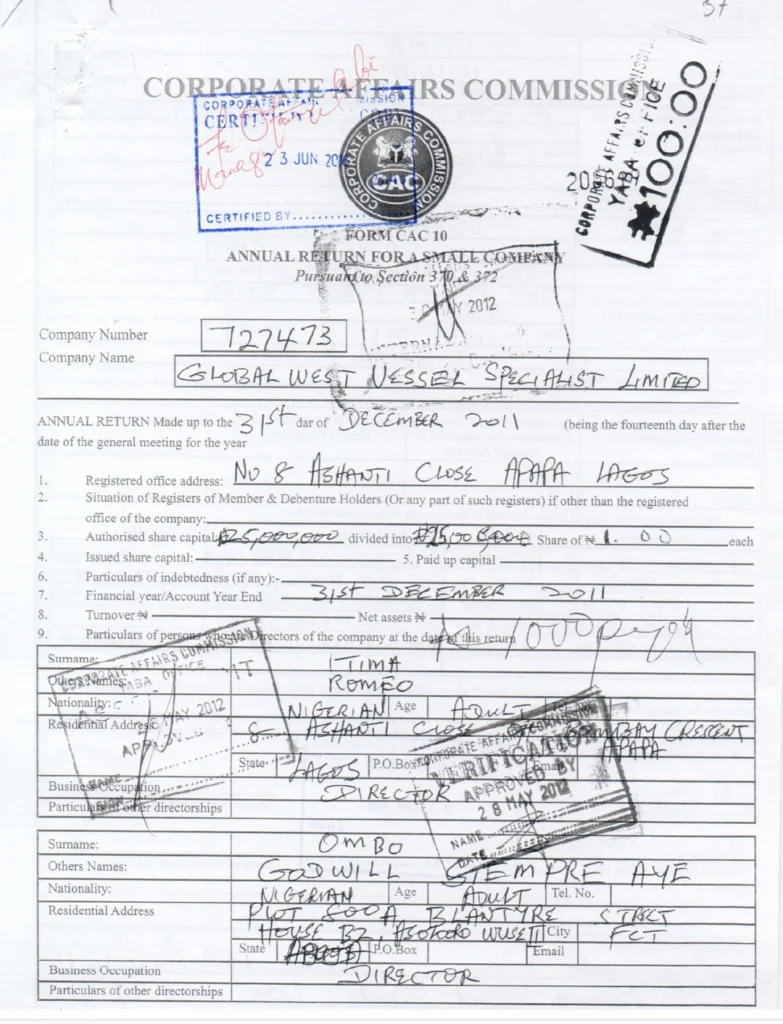 37
CORPORATE AFFAIRS COMMISSION
CORPORATE AFFAIRS COMMISSION
CERTIFIED
23 JUN
CERTIFIED BY
CORPORATE AFFAIRS COMMISSION
CAC
CORPORATE AFFAIRS COMMISSION
YABA OFFICE
₦100.00
FORM CAC 10
ANNUAL RETURN FOR A SMALL COMPANY
Pursuant to Section 370 & 372
MAY 2012
Company Number 727473
Company Name GLOBAL WEST VESSEL SPECIALIST LIMITED
ANNUAL RETURN Made up to the 31st dar of DECEMBER 2011 (being the fourteenth day after the
date of the general meeting for the year
1. Registered office address: NO 8 ASHANTI CLOSE APAPA LAGOS
2. Situation of Registers of Member & Debenture Holders (Or any part of such registers) if other than the registered
office of the company:
3. Authorised share capital ₦25,000,000 divided into Share of ₦ 1.00 each
4. Issued share capital: 5. Paid up capital
6. Particulars of indebtedness (if any):-
7. Financial year/Account Year End 31st DECEMBER 2011
8. Turnover ₦ Net assets ₦
9. Particulars of persons who are Directors of the company at the date of this return
Surname: ITIMA
Others Names: ROMEO
Nationality: NIGERIAN Age ADULT
Residential Address: 8 ASHANTI CLOSE BOMBAY CRESCENT
APAPA
State LAGOS P.O.Box Email
Business Occupation DIRECTOR
Particulars of other directorships
CORPORATE AFFAIRS COMMISSION
YABA OFFICE
MAY 2012
APPROVED
NAME
SIGN
CORPORATE AFFAIRS COMMISSION
VERIFICATION
APPROVED BY
28 MAY 2012
NAME
DATE
Surname: OMBO
Others Names: GODWILL STEMPRE AYE
Nationality: NIGERIAN Age ADULT Tel. No.
Residential Address PLOT 500A, BLANTYRE STREET
HOUSE B2, ASOKORO WUSE II City FCT
State P.O.Box Email
Business Occupation DIRECTOR
Particulars of other directorships